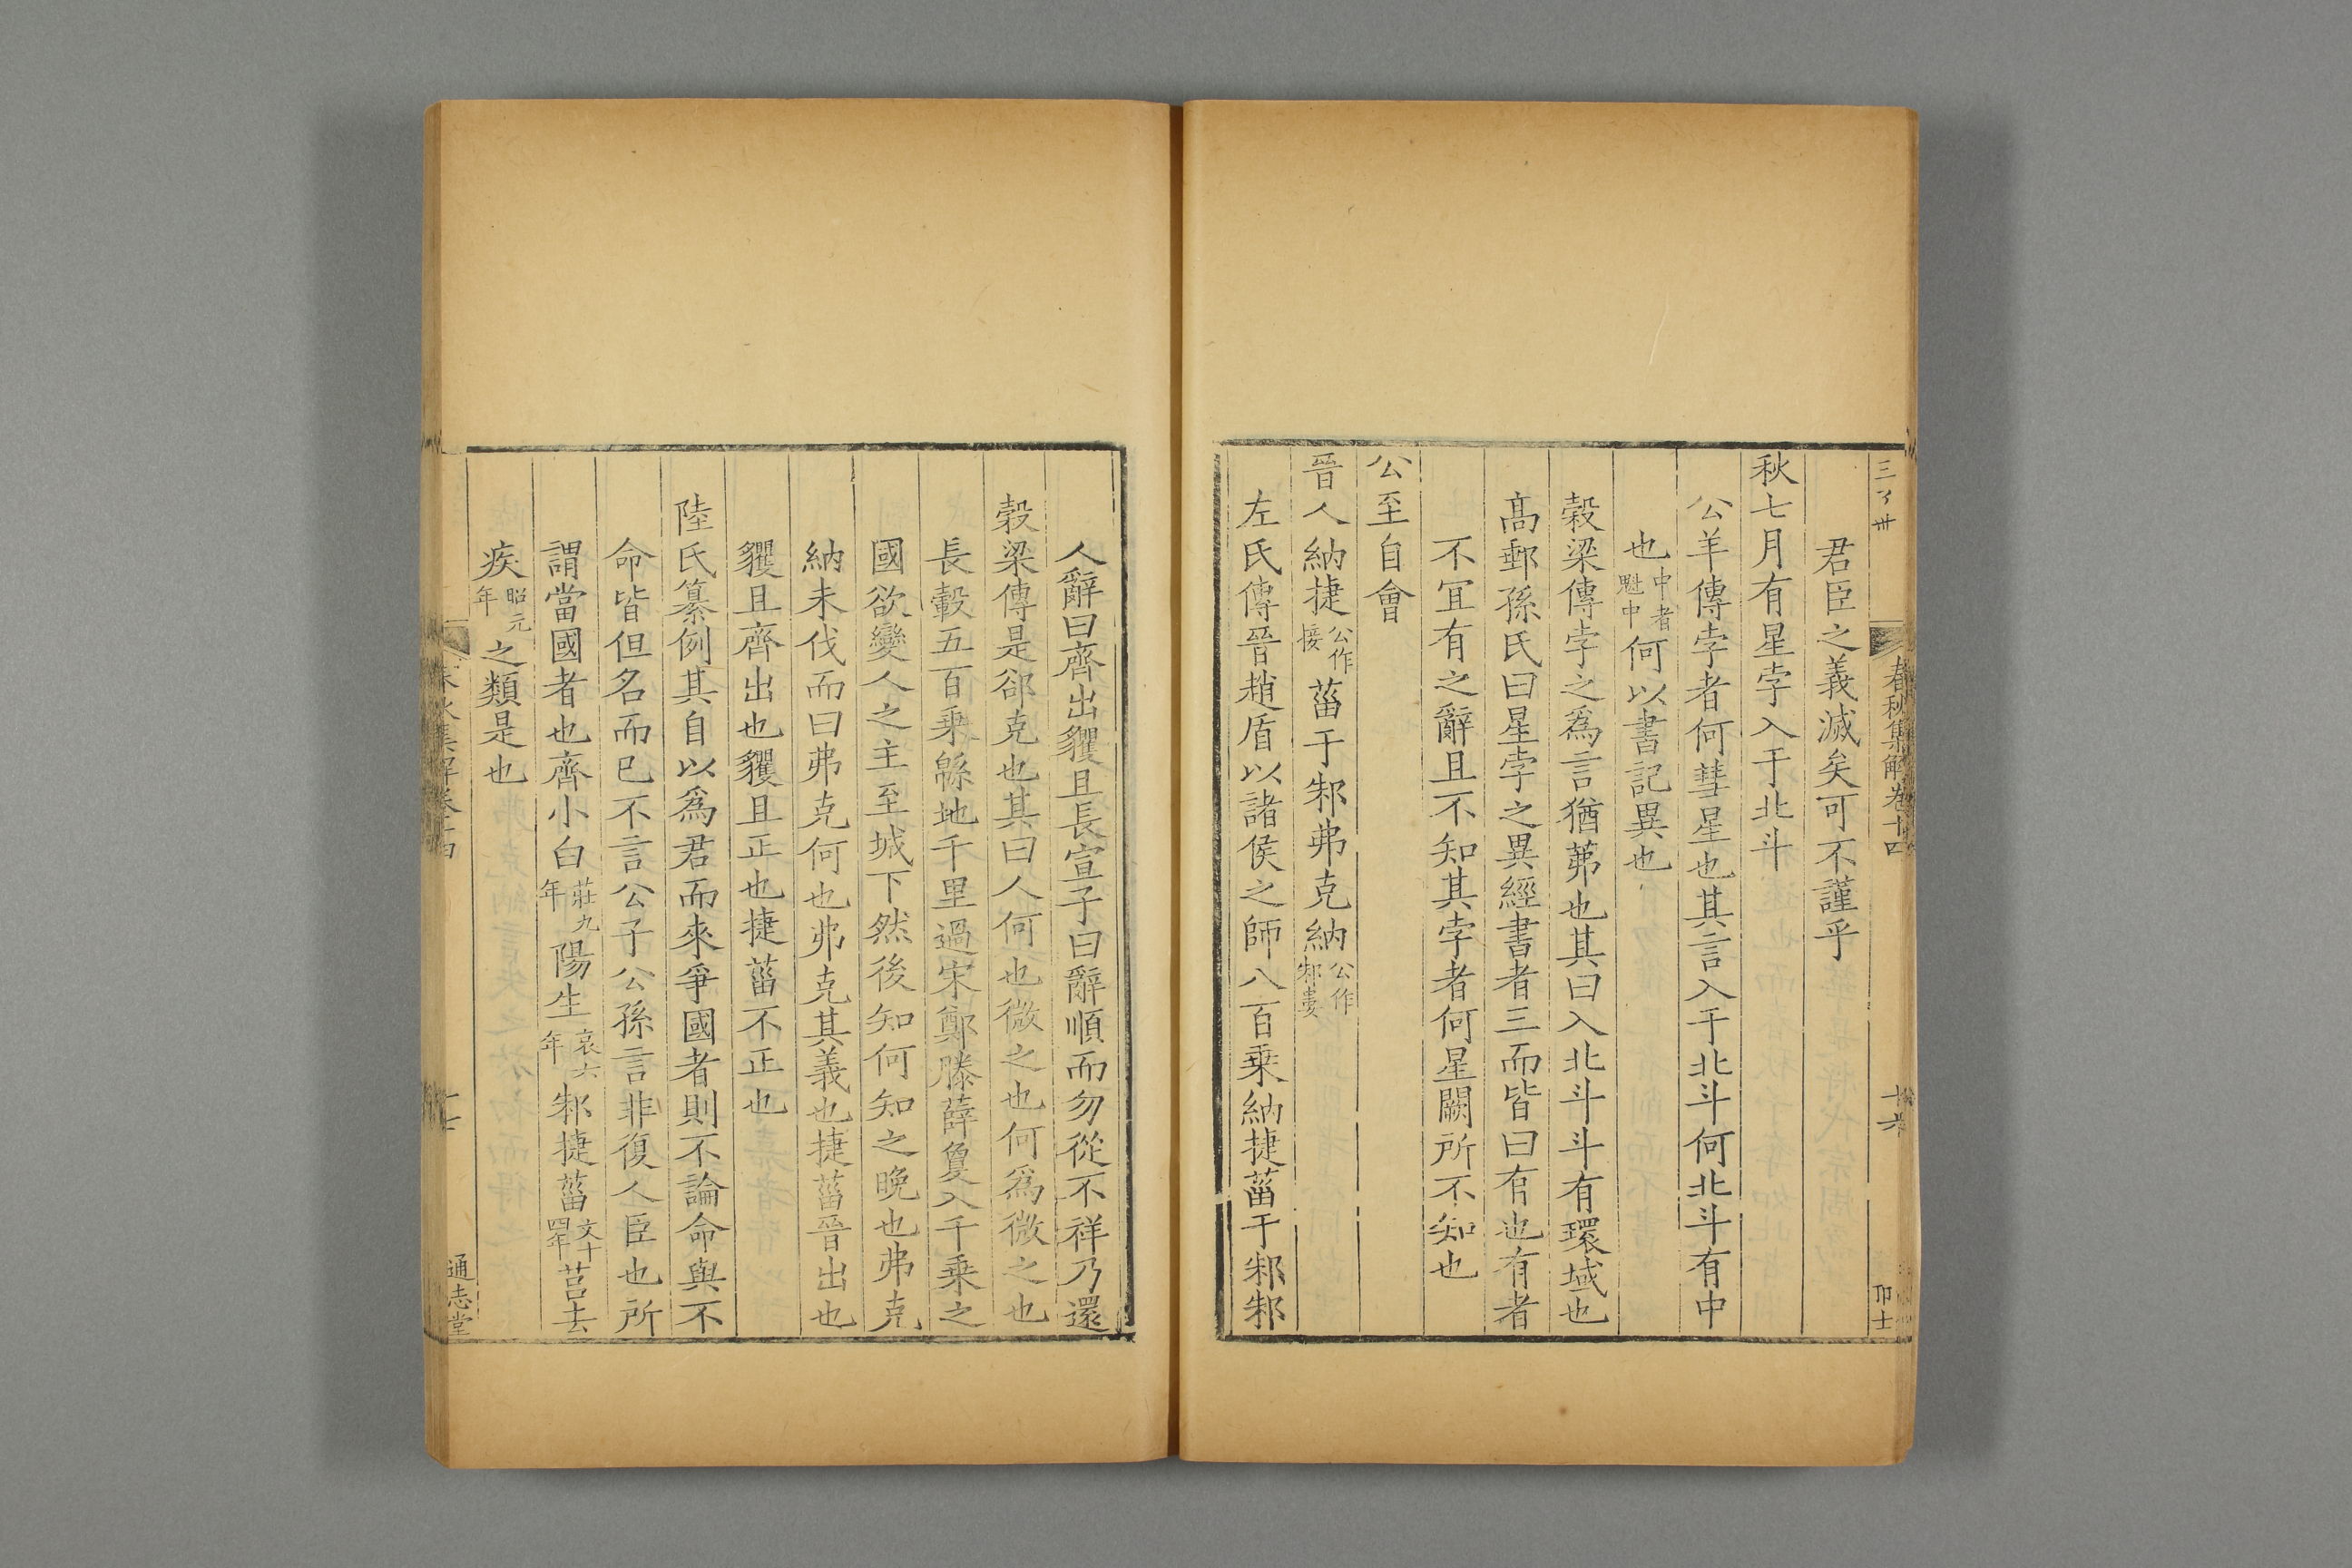 春秋集解卷十四
十六
君臣之義滅矣可不謹乎
秋七月有星孛入于北斗
公羊傳孛者何彗星也其言入于北斗何北斗有中
也中者魁中何以書記異也
穀梁傳孛之爲言猶茀也其曰入北斗斗有環域也
髙郵孫氏曰星孛之異經書者三而皆曰有也有者
不冝有之辭且不知其孛者何星闕所不知也
公至自會
晉人納捷公作接菑于邾弗克納公作邾婁
左氏傳晉趙盾以諸侯之師八百乗納捷菑于邾邾
人辭曰齊出貜且長宣子曰辭順而勿從不祥乃還
榖梁傳是郤克也其曰人何也微之也何爲微之也
長轂五百乗緜地千里過宋鄭滕薛夐入千乗之
國欲變人之主至城下然後知何知之晚也弗克
納未伐而曰弗克何也弗克其義也捷菑晉出也
貜且齊出也貜且正也捷菑不正也
陸氏纂例其自以爲君而來爭國者則不論命與不
命皆但名而已不言公子公孫言非復人臣也所
謂當國者也齊小白莊九年陽生哀六年邾捷菑文十四年莒去
疾昭元年之類是也
通志堂